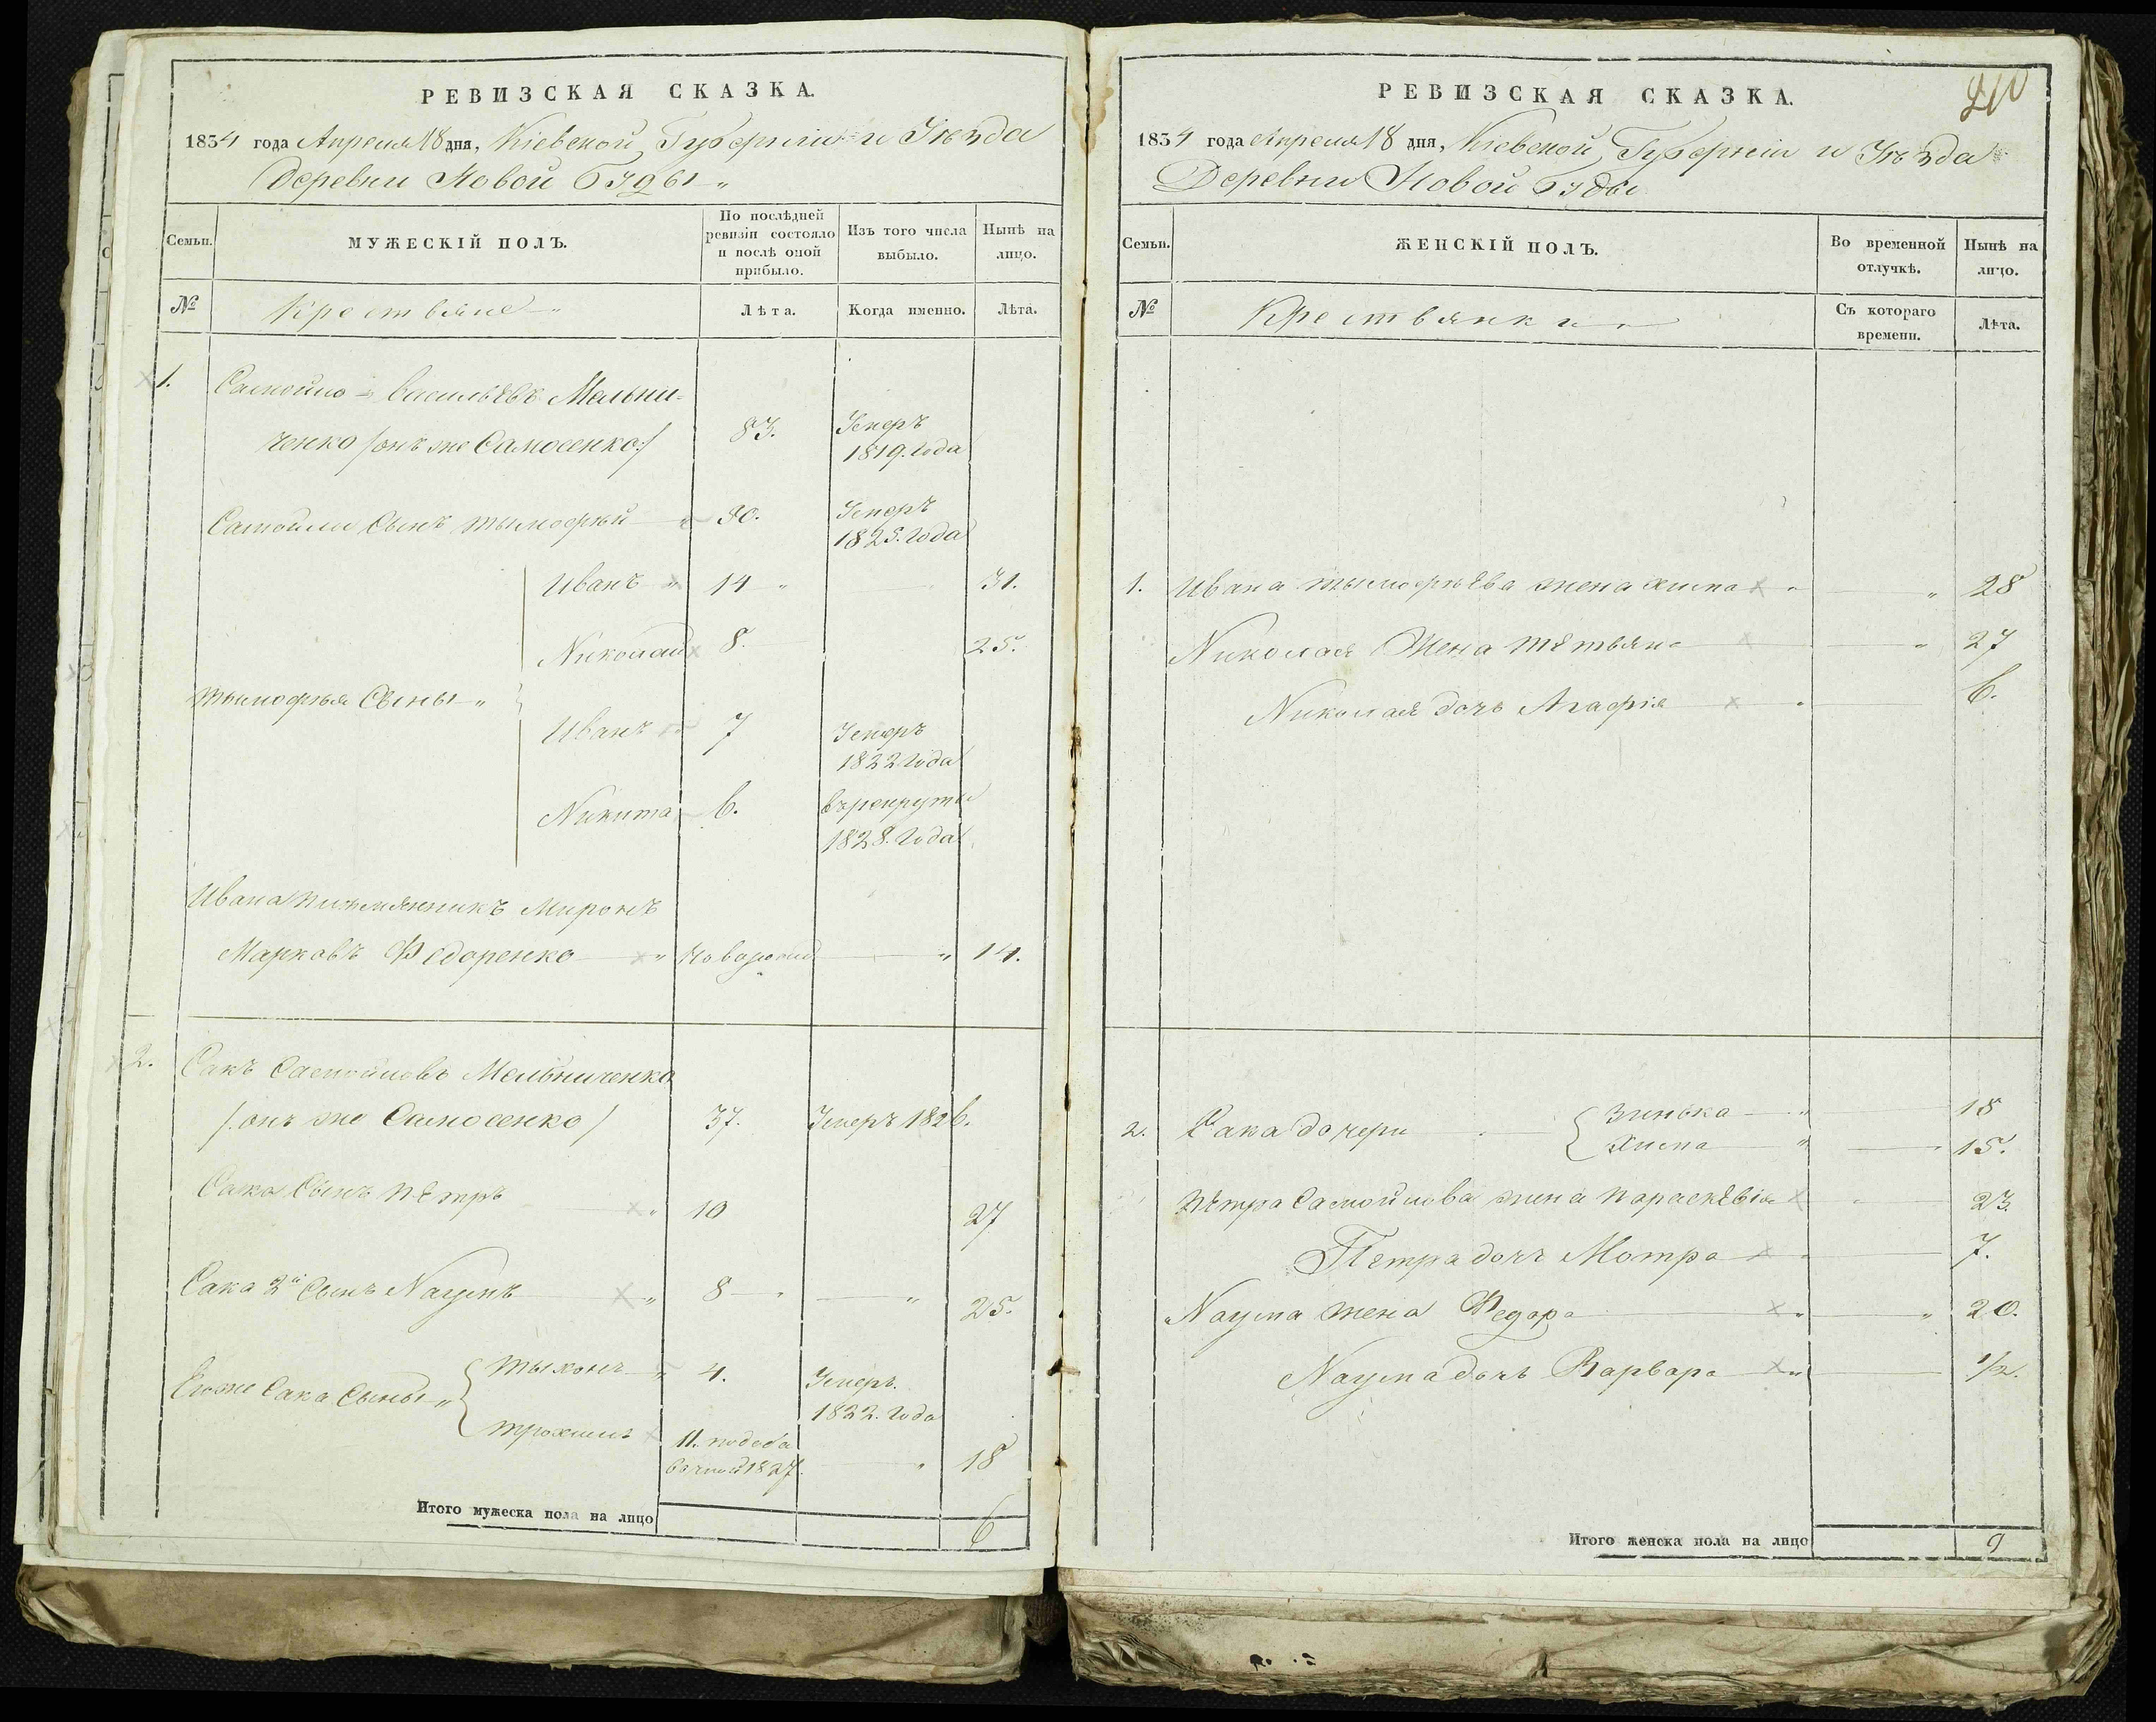 РЕВИЗСКАЯ СКАЗКА.
1834 года Апреля 18 дня, Кіевской Губерніи и Уѣзда
Деревни Новой Буды „
Семьи.
МУЖЕСКІЙ ПОЛЪ.
По послѣдней
ревизіи состояло
и послѣ оной
прибыло.
Изъ того числа
выбыло.
Нынѣ на
лицо.
№
Крестьяне „
Лѣта.
Когда именно.
Лѣта.
1. Самойло Васильевъ Мельни-
ченко /онъ же Самосенко/ 83. Умеръ
1819. года
Самойли Сынъ Тымофѣй 30. Умеръ
1825. года
Иванъ „ 14 „ 31.
Николай 8. 25.
Тымофѣя Сыны „
Иванъ 7 Умеръ
1822 года
Никита 6. въ рекруты
1828. года
Ивана племянникъ Миронъ
Марковъ Федоренко „ „ 14.
2. Сакъ Самойловъ Мельниченко
/онъ же Самосенко/ 37. Умеръ 1826.
Сака Сынъ Петръ „ 10 27
Сака 2й Сынъ Наумъ „ 8 „ „ 25.
Его же Сака Сыны „
Тыхонъ „ 4. Умеръ.
1822. года
Трохимъ 11. 1827. „ 18
Итого мужеска пола на лицо 6
РЕВИЗСКАЯ СКАЗКА.
1834 года Апреля 18 дня, Кіевской Губерніи и Уѣзда
Деревни Новой Буды
Семьи.
ЖЕНСКІЙ ПОЛЪ.
Во временной
отлучкѣ.
Нынѣ на
лицо.
№
Крестьянки „
Съ котораго
времени.
Лѣта.
1. Ивана Тымофѣева жена Химка „ „ 28
Николая Жена Тетьяна „ 27
Николая дочь Агафія „ 6.
2. Сака дочери Зинька „ 18
Химка „ 15.
Петра Самойлова жена Параскевія „ 23.
Петра дочь Мотра „ 7.
Наума жена Федора „ „ 20.
Наума дочь Варвара „ 1/2.
Итого женска пола на лицо 9